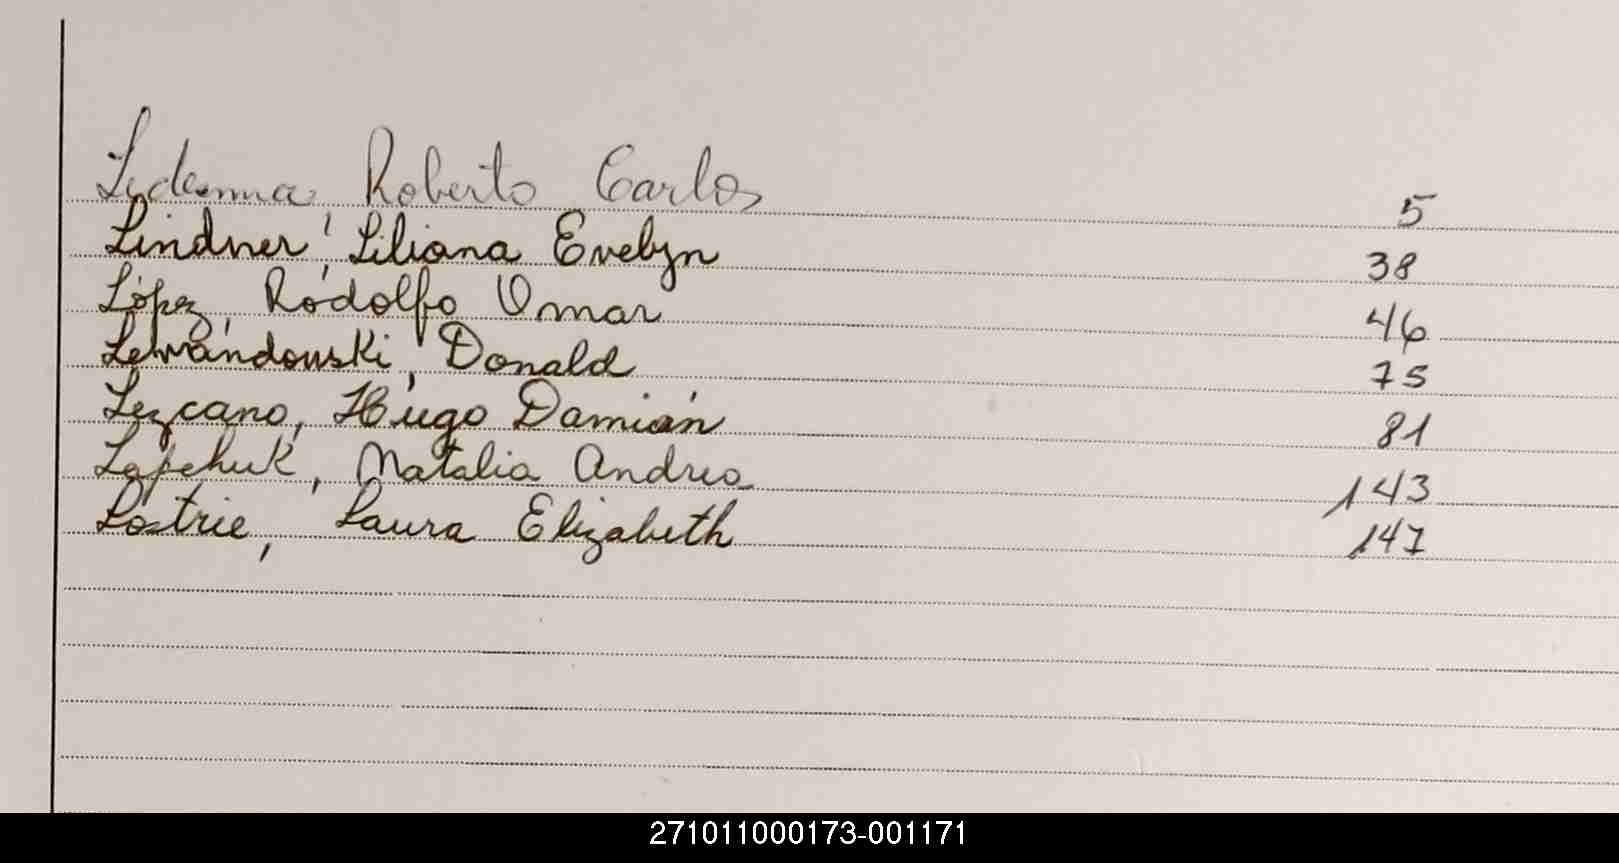 Ledesma, Roberto Carlos 5
Lindner, Liliana Evelyn 38
López, Rodolfo Omar 46
Lewandowski, Donald 75
Lezcano, Hugo Damián 81
Lapchuk, Natalia Andrea 143
Lostrie, Laura Elizabeth 147
271011000173-001171